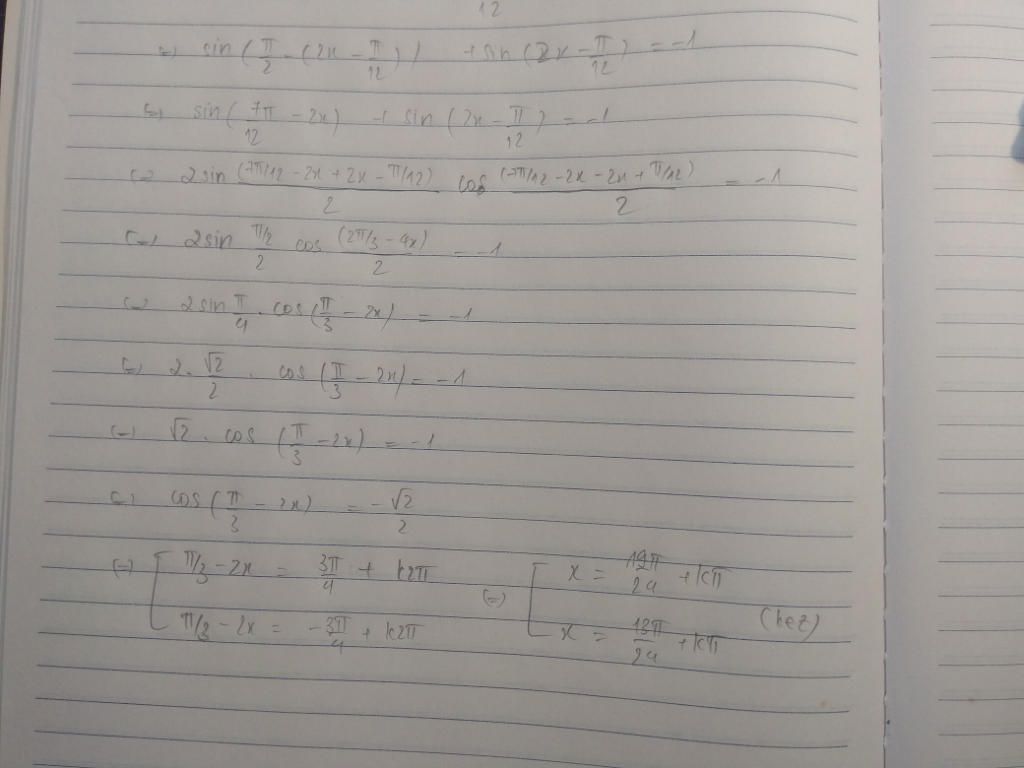 12
⇔ sin(π/2 - (2x - π/12)) + sin(2x - π/12) = -1
⇔ sin(7π/12 - 2x) + sin(2x - π/12) = -1
⇔ 2sin (7π/12 - 2x + 2x - π/12)/2 cos (7π/12 - 2x - 2x + π/12)/2 = -1
⇔ 2sin (π/2)/2 cos (2π/3 - 4x)/2 = -1
⇔ 2sin π/4 . cos(π/3 - 2x) = -1
⇔ 2. √2/2 . cos(π/3 - 2x) = -1
⇔ √2 . cos(π/3 - 2x) = -1
⇔ cos(π/3 - 2x) = -√2/2
⇔ [ π/3 - 2x = 3π/4 + k2π ⇔ [ x = 19π/24 + kπ
π/3 - 2x = -3π/4 + k2π x = 13π/24 + kπ (k∈Z)